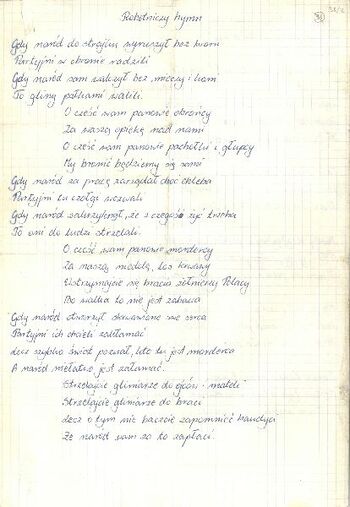 Robotniczy hymn
31
Gdy naród do strajku wyruszył bez broni
Partyjni w obronie radzili
Gdy naród sam walczył bez mieczy i broni
To gliny pałkami walili.
O cześć wam panowie obrońcy
Za waszą opiekę nad nami
O cześć wam panowie pachołki i głupcy
My bronić będziemy się sami
Gdy naród za pracę zażądał choć chleba
Partyjni tu czołgi wezwali
Gdy naród zakrzyknął, że z czegoś żyć trzeba
To oni do ludzi strzelali.
O cześć wam panowie mordercy
Za naszą niedolę, los krwawy
Wstrzymajcie się bracia żołnierze Polacy
Bo walka to nie jest zabawa
Gdy naród otworzył skrwawione swe serca
Partyjni ich chcieli załamać
Lecz szybko świat poznał, kto tu jest morderca
A naród niełatwo jest załamać.
Strzelajcie gliniarze do ojców i matek
Strzelajcie gliniarze do braci
Lecz o tym nie zapomnieć bandyci
Że naród wam za to zapłaci.